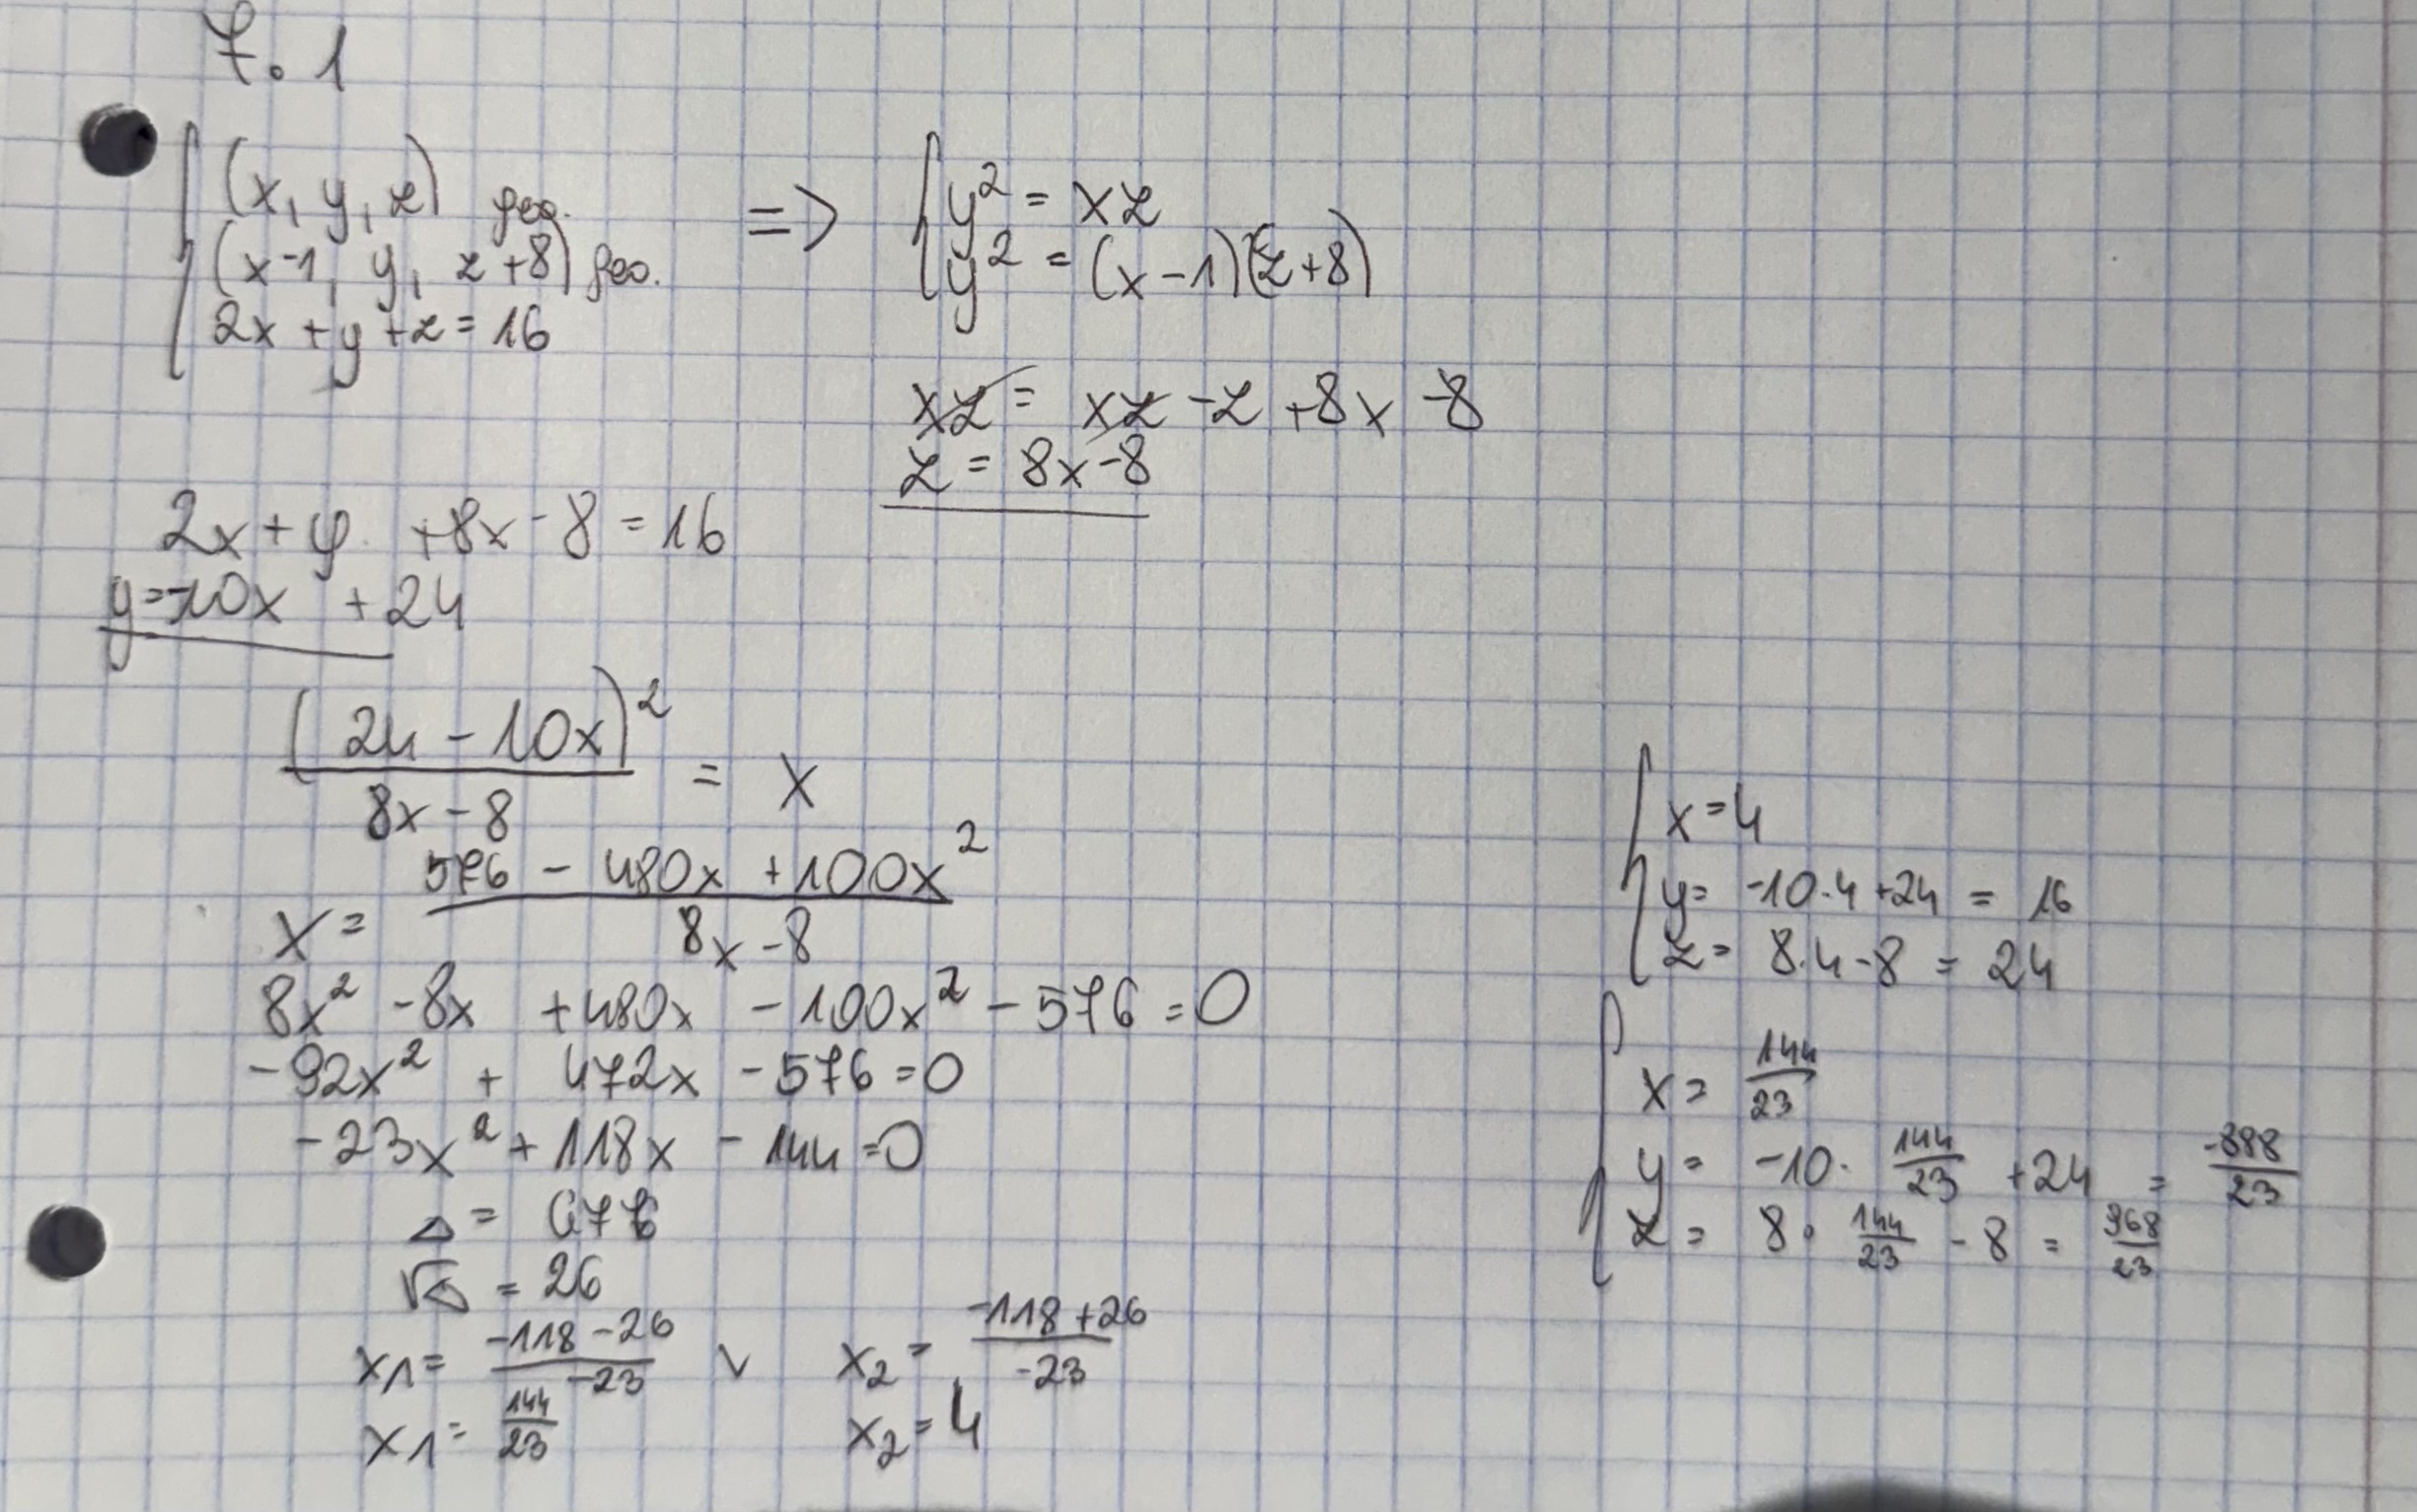 7.1
(x, y, z) geo.
(x-1, y, z+8) geo.
2x + y + z = 16
=>
y² = xz
y² = (x-1)(z+8)
xz = xz - z + 8x - 8
z = 8x - 8
2x + y + 8x - 8 = 16
y = -10x + 24
(24 - 10x)² / (8x - 8) = x
x = (576 - 480x + 100x²) / (8x - 8)
8x² - 8x + 480x - 100x² - 576 = 0
-92x² + 472x - 576 = 0
-23x² + 118x - 144 = 0
Δ = 676
√Δ = 26
x1 = (-118 - 26) / -23 ∨ x2 = (-118 + 26) / -23
x1 = 144/23 x2 = 4
x = 4
y = -10·4 + 24 = 16
z = 8·4 - 8 = 24
x = 144/23
y = -10 · 144/23 + 24 = -888/23
z = 8 · 144/23 - 8 = 968/23